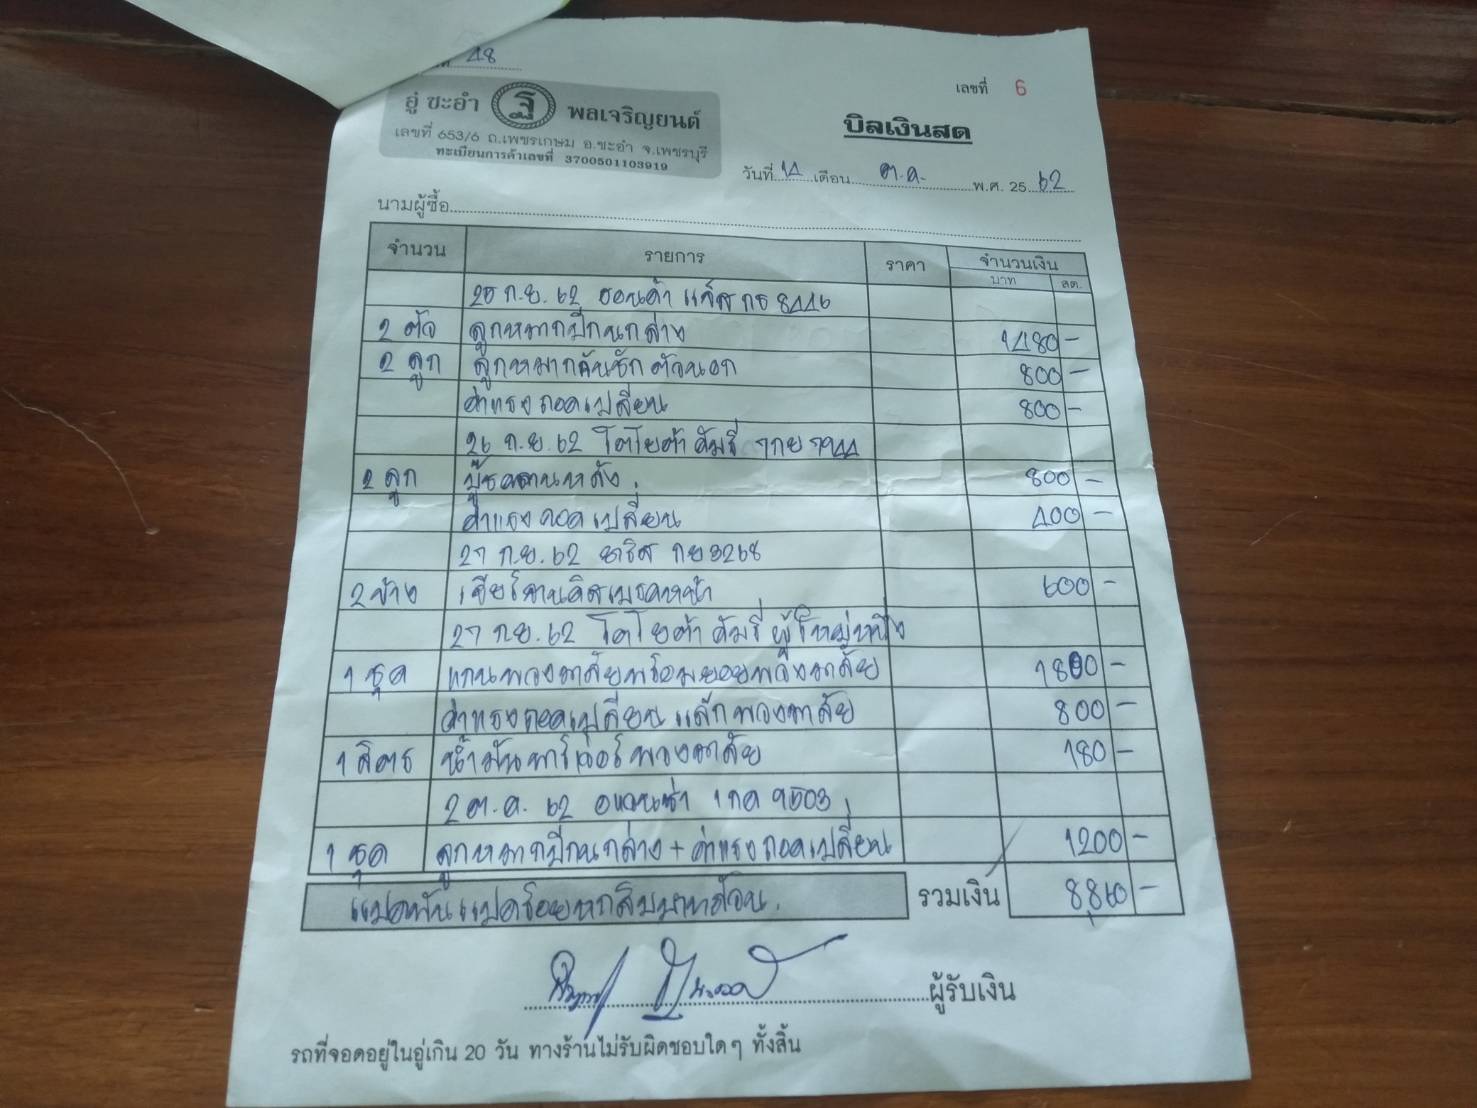 48
เลขที่ 6
อู่ ชะอำ ฐิ พลเจริญยนต์
บิลเงินสด
เลขที่ 653/6 ถ.เพชรเกษม อ.ชะอำ จ.เพชรบุรี
ทะเบียนการค้าเลขที่ 3700501103919
วันที่ 14 เดือน ต.ค. พ.ศ. 25 62
นามผู้ซื้อ
จำนวน รายการ ราคา จำนวนเงิน
บาท สต.
25 ก.ย. 62 ฮอนด้า แจ๊ส กธ 8446
2 ตัว ลูกหมากปีกนกล่าง 1480 -
2 ลูก ลูกหมากคันชักตัวนอก 800 -
ค่าแรงถอดเปลี่ยน 800 -
26 ก.ย. 62 โตโยต้า คัมรี่ 7944
2 ลูก บู๊ชคานหลัง 800 -
ค่าแรงถอดเปลี่ยน 400 -
27 ก.ย. 62 ยาริส กย 3268
2 ข้าง เจียร์จานดิสเบรคหน้า 600 -
27 ก.ย. 62 โตโยต้า คัมรี่ ผู้ใหญ่หนึ่ง
1 ชุด แกนพวงมาลัยพร้อมยอยพวงมาลัย 1800 -
ค่าแรงถอดเปลี่ยนแล็กพวงมาลัย 800 -
1 ลิตร น้ำมันพาว์เวอร์พวงมาลัย 180 -
2 ต.ค. 62 อแวนซ่า 1 กค 9503
1 ชุด ลูกหมากปีกนกล่าง + ค่าแรงถอดเปลี่ยน 1200 -
แปดพันแปดร้อยหกสิบบาทถ้วน รวมเงิน 8,860 -
ผู้รับเงิน
รถที่จอดอยู่ในอู่เกิน 20 วัน ทางร้านไม่รับผิดชอบใดๆ ทั้งสิ้น